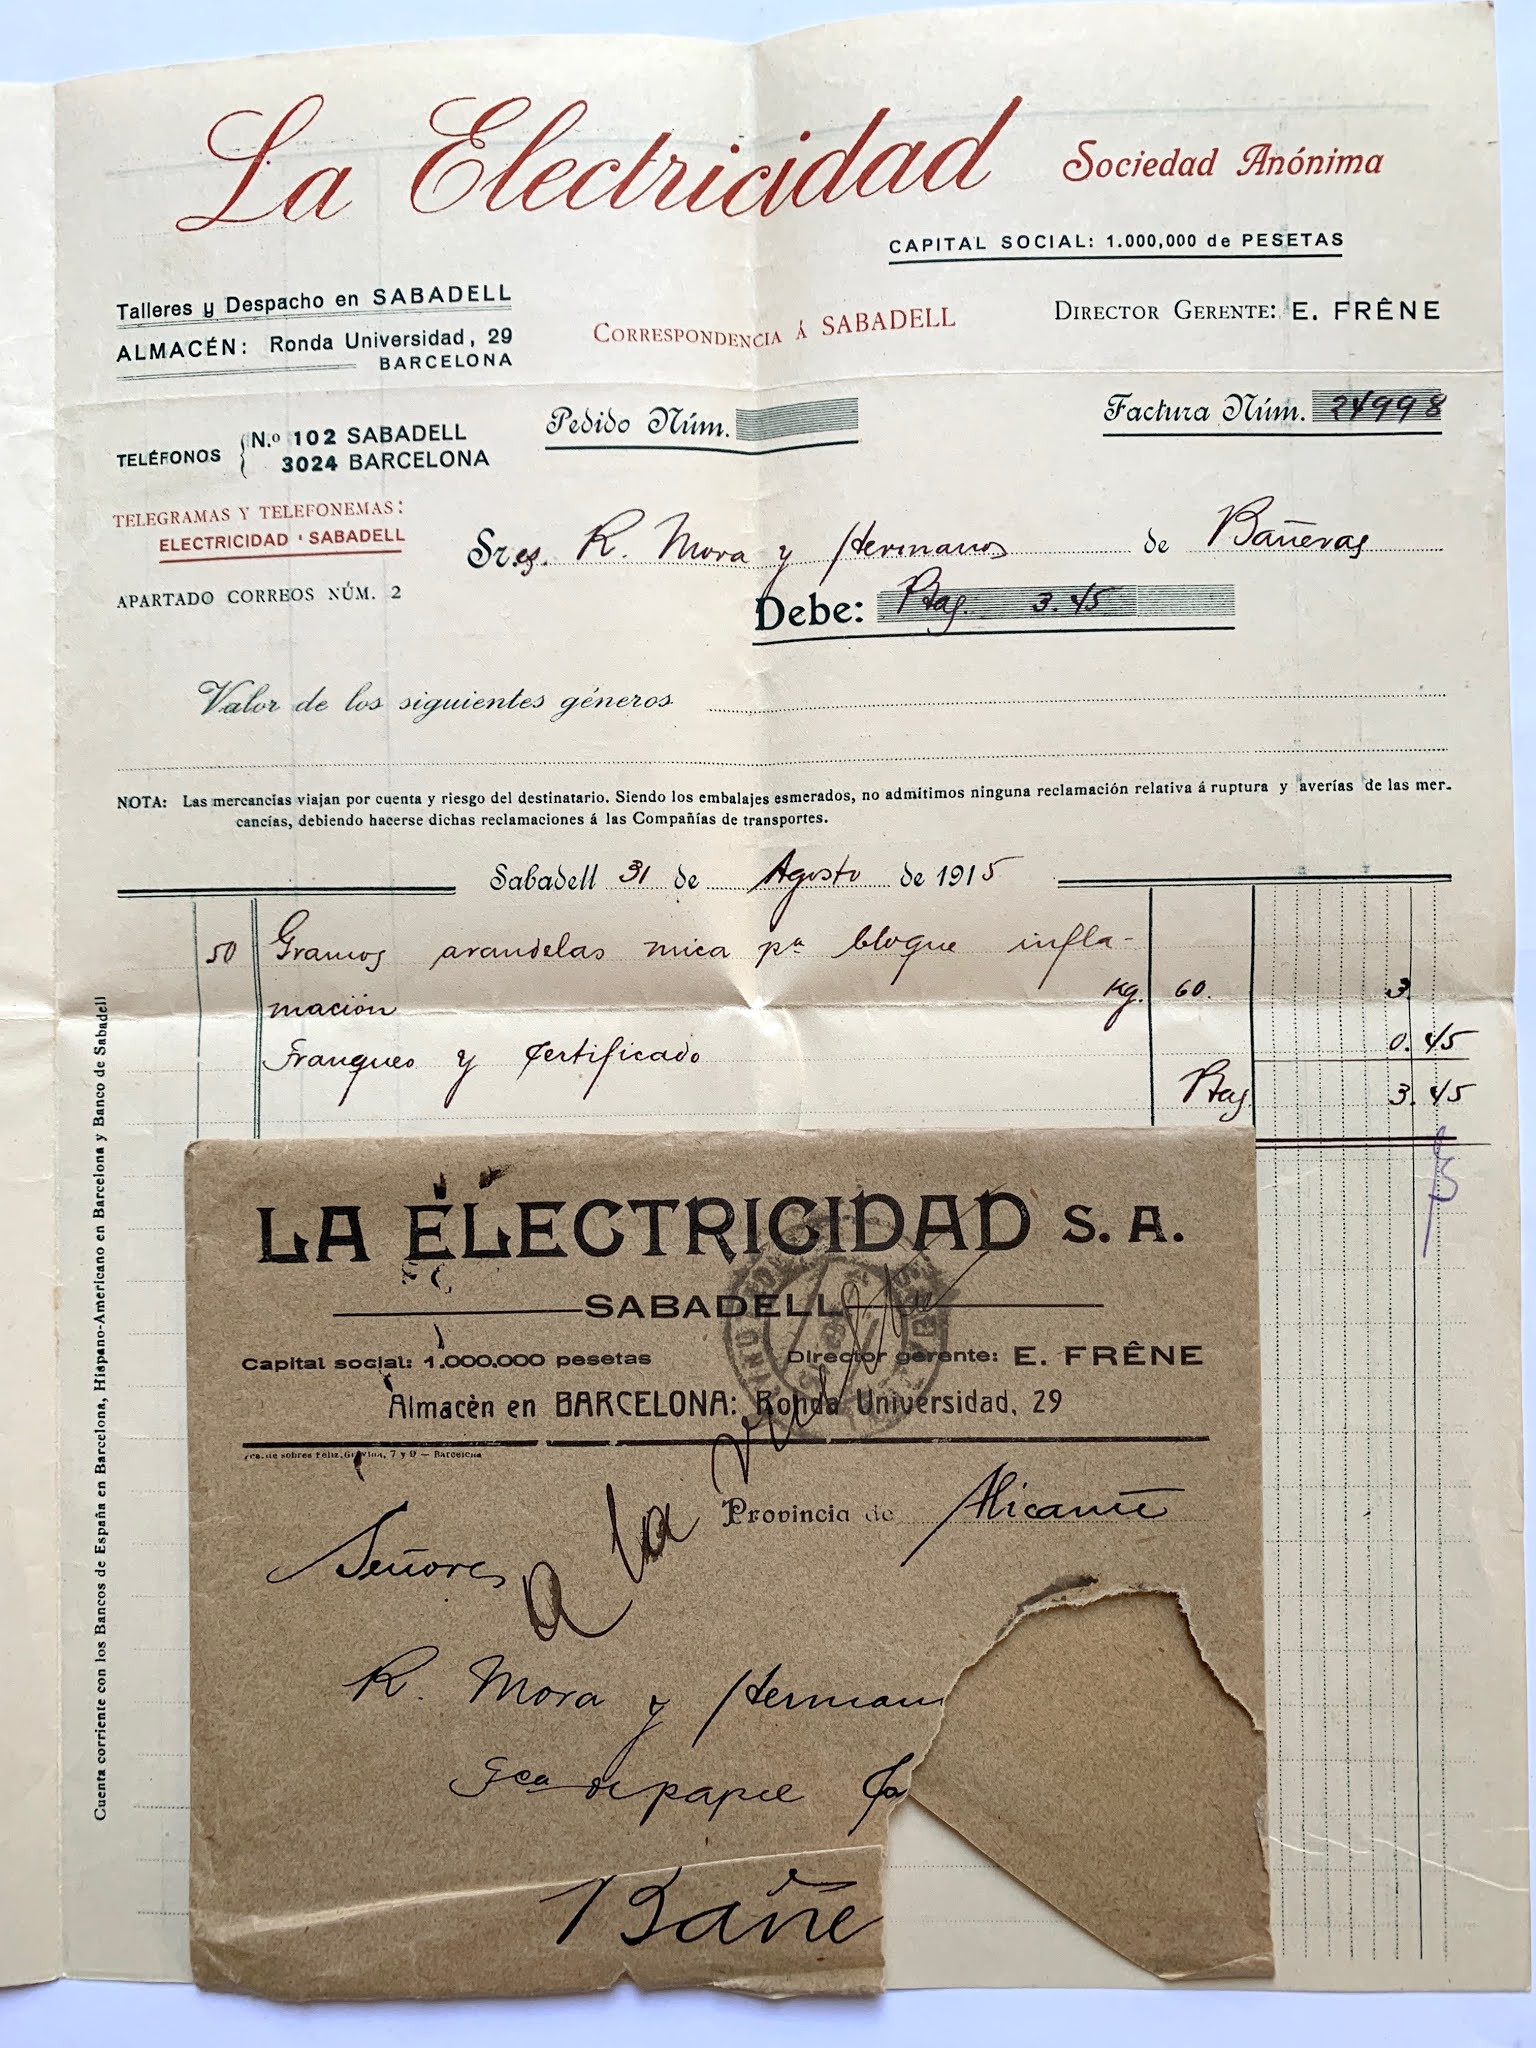 La Electricidad Sociedad Anónima
CAPITAL SOCIAL: 1.000,000 de PESETAS
Talleres y Despacho en SABADELL
ALMACÉN: Ronda Universidad, 29
BARCELONA
CORRESPONDENCIA Á SABADELL
DIRECTOR GERENTE: E. FRÊNE
Pedido Núm.
Factura Núm. 24998
TELÉFONOS
N.º 102 SABADELL
3024 BARCELONA
TELEGRAMAS Y TELEFONEMAS:
ELECTRICIDAD · SABADELL
APARTADO CORREOS NÚM. 2
Sres. R. Mora y Hermanos de Bañeras
Debe: Ptas. 3.45
Valor de los siguientes géneros
NOTA: Las mercancías viajan por cuenta y riesgo del destinatario. Siendo los embalajes esmerados, no admitimos ninguna reclamación relativa á ruptura y averías de las mer-
cancías, debiendo hacerse dichas reclamaciones á las Compañías de transportes.
Sabadell 31 de Agosto de 1915
50 Gramos arandelas mica pa bloque infla-
mación Kg. 60. 3.
Franqueo y Certificado 0.45
Ptas 3.45
Cuenta corriente con los Bancos de España en Barcelona, Hispano-Americano en Barcelona y Banco de Sabadell
LA ELECTRICIDAD S. A.
SABADELL
Capital social: 1.000.000 pesetas Director gerente: E. FRÊNE
Almacèn en BARCELONA: Ronda Universidad, 29
7 y 9 — Barcelona
Provincia de Alicante
Señores
a la
R. Mora y Herman
de papel
Bañe